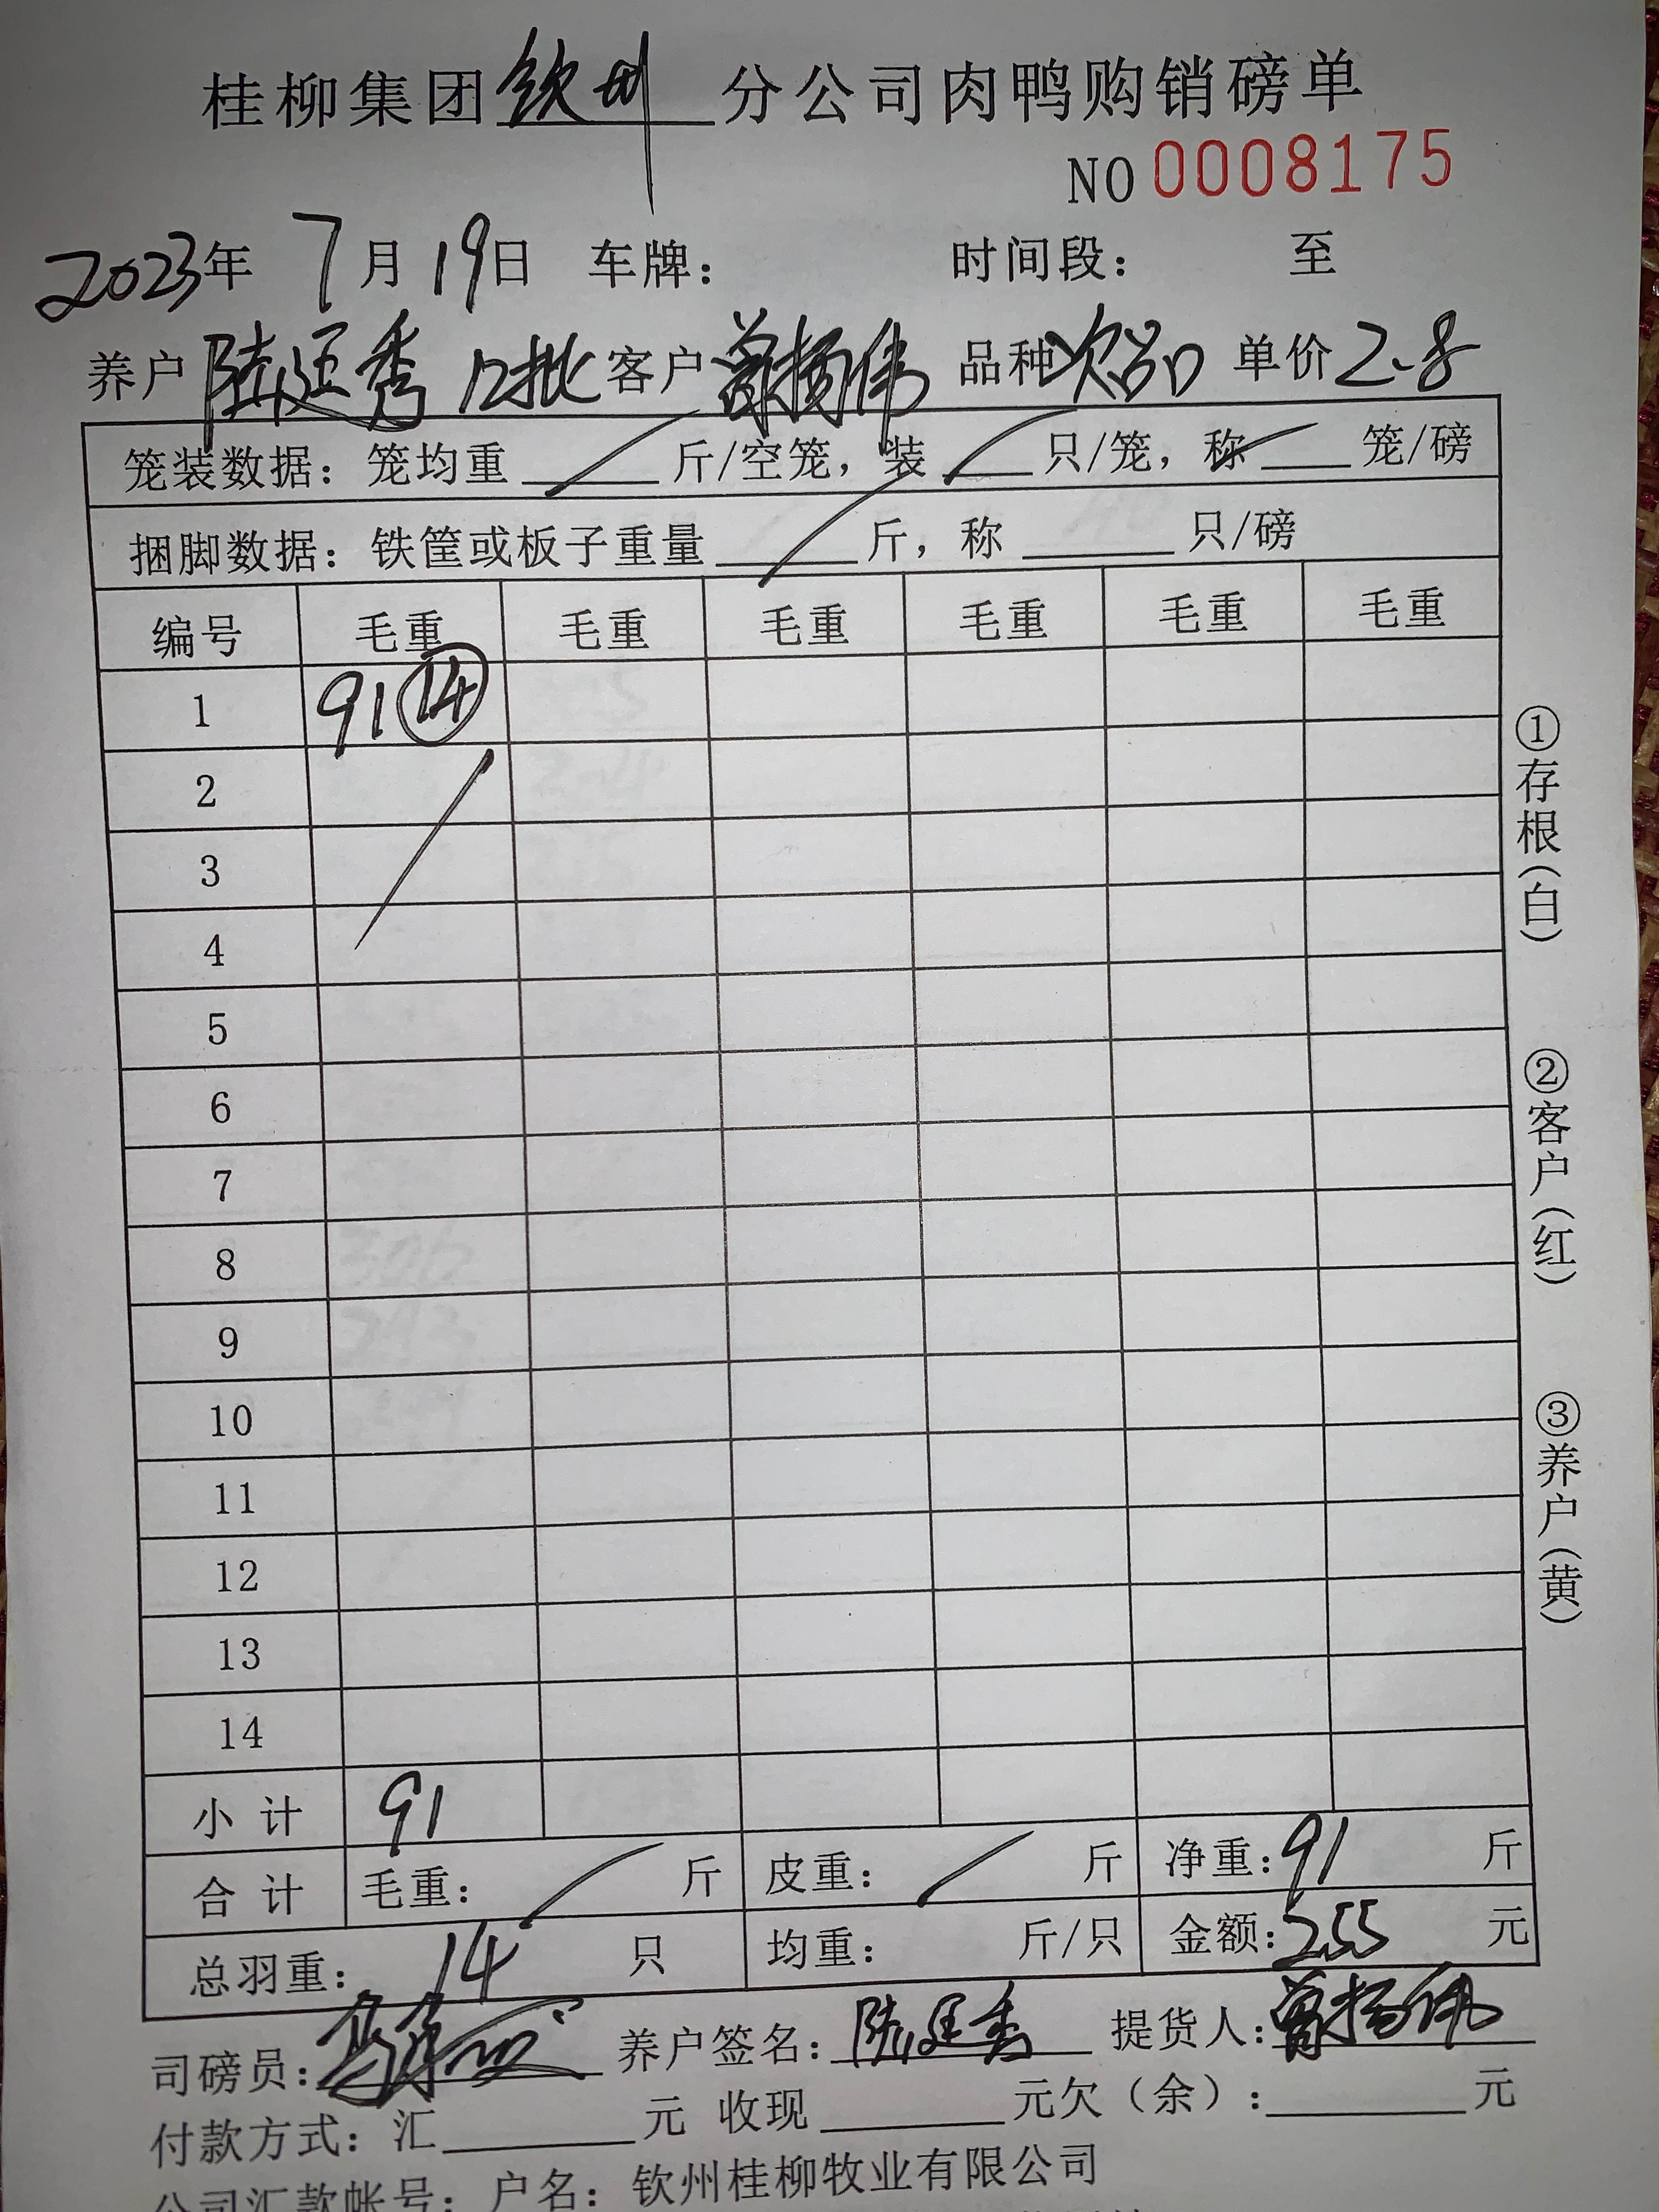 桂柳集团钦州分公司肉鸭购销磅单
NO 0008175
2023年 7月 19日 车牌: 时间段: 至
养户 陆廷秀 12批 客户 曾扬伟 品种 次品 单价 2.8
笼装数据:笼均重 斤/空笼,装 只/笼,称 笼/磅
捆脚数据:铁筐或板子重量 斤,称 只/磅
编号 毛重 毛重 毛重 毛重 毛重 毛重
1 91 14
2
3
4
5
6
7
8
9
10
11
12
13
14
小计 91
合计 毛重: 斤 皮重: 斤 净重:91 斤
总羽重: 14 只 均重: 斤/只 金额:255 元
司磅员: 养户签名:陆廷秀 提货人:曾扬伟
付款方式:汇 元 收现 元欠(余): 元
公司汇款帐号:户名:钦州桂柳牧业有限公司
①存根(白)
②客户(红)
③养户(黄)